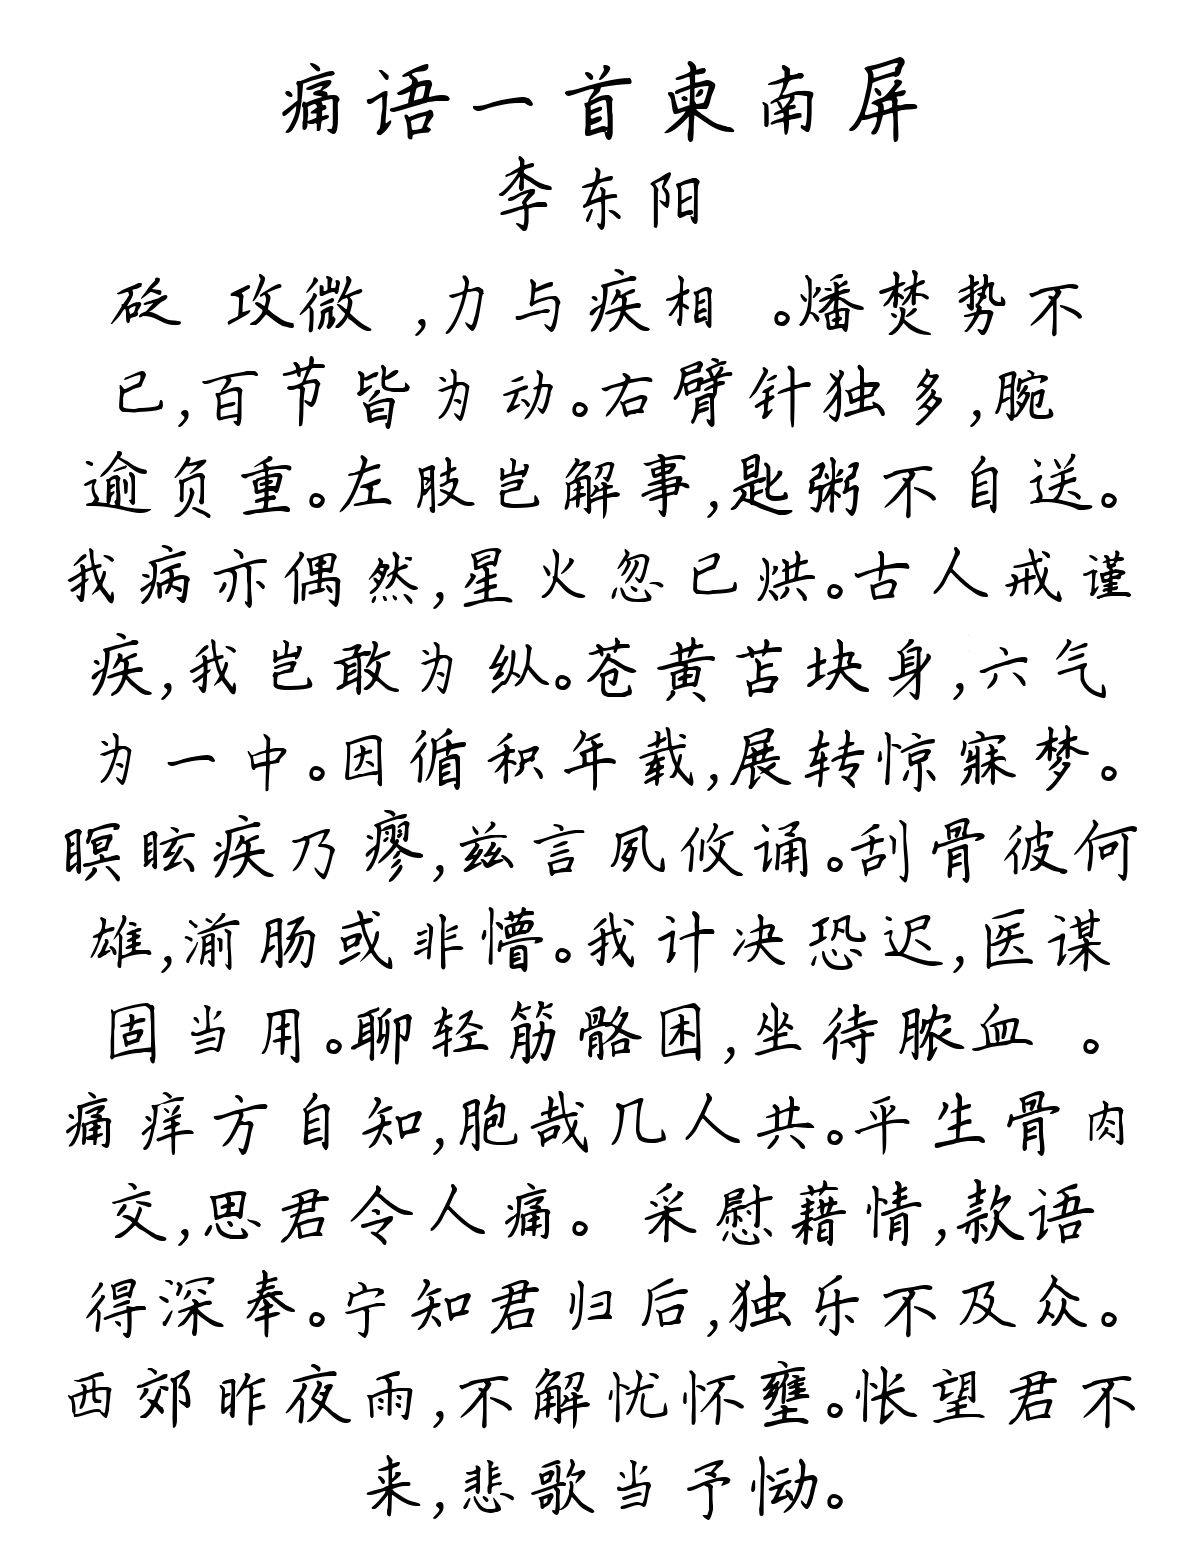 痛语一首柬南屏
李东阳
砭 攻微 ,力与疾相 。燔焚势不
已,百节皆为动。右臂针独多,腕
逾负重。左肢岂解事,匙粥不自送。
我病亦偶然,星火忽已烘。古人戒谨
疾,我岂敢为纵。苍黄苫块身,六气
为一中。因循积年载,展转惊寐梦。
瞑眩疾乃瘳,兹言夙攸诵。刮骨彼何
雄,湔肠或非懵。我计决恐迟,医谋
固当用。聊轻筋骼困,坐待脓血 。
痛痒方自知,胞哉几人共。平生骨肉
交,思君令人痛。 采慰藉情,款语
得深奉。宁知君归后,独乐不及众。
西郊昨夜雨,不解忧怀壅。怅望君不
来,悲歌当予恸。